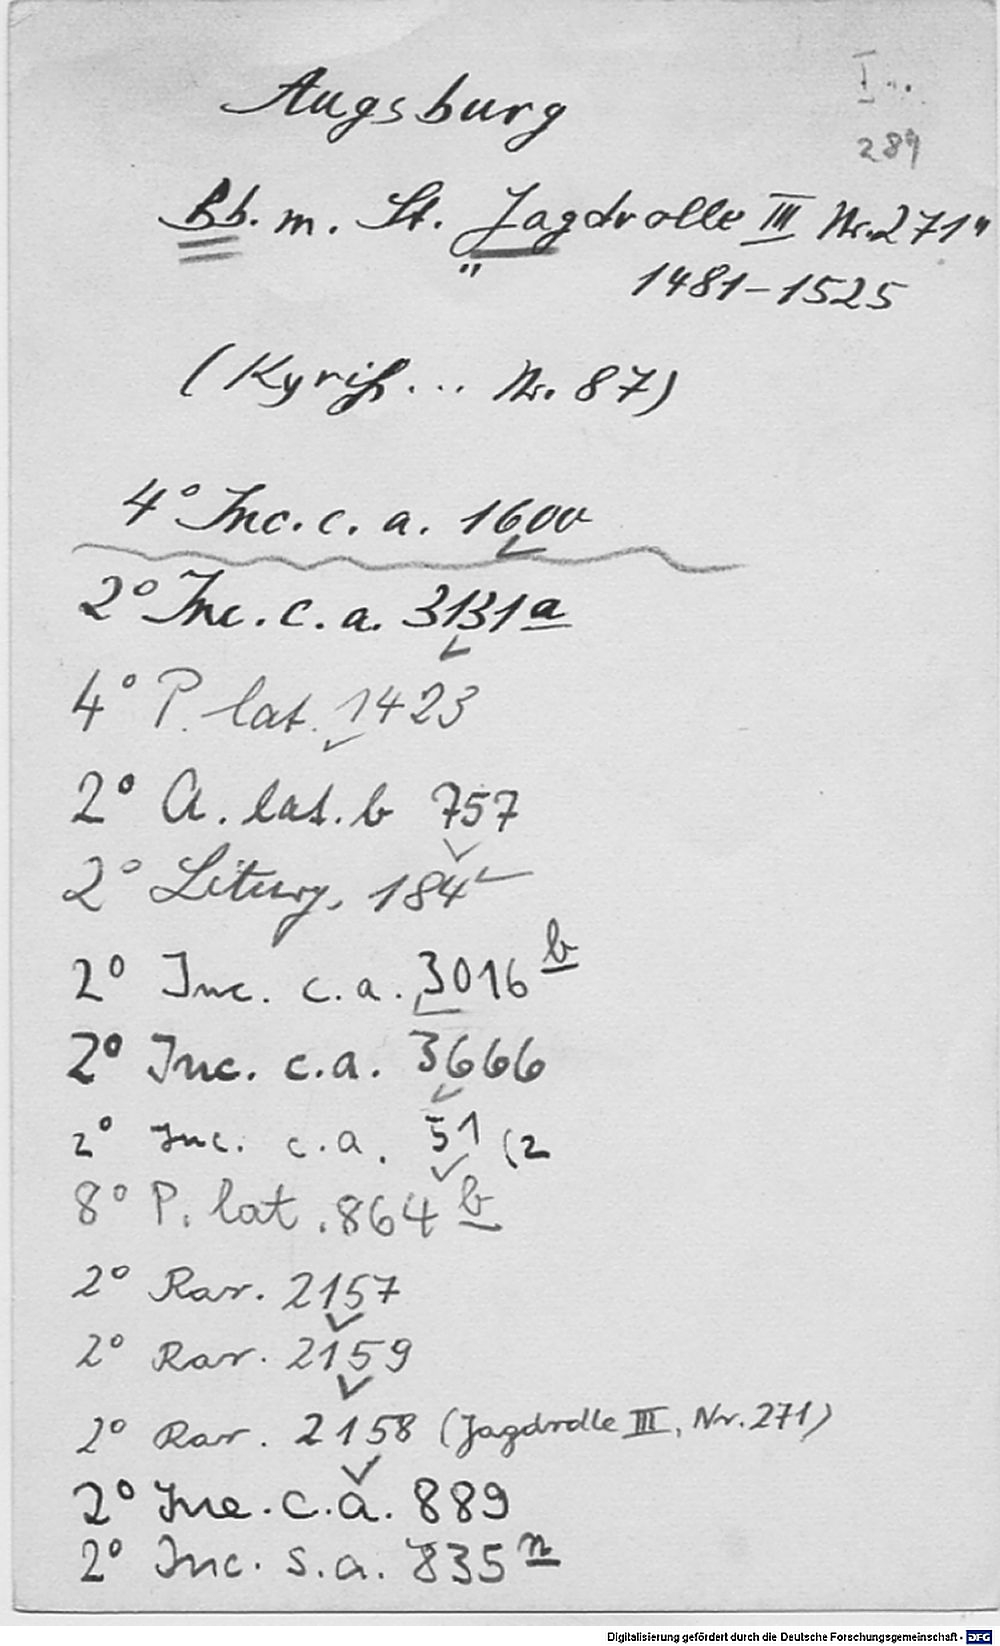 Augsburg
I...
289
Bb. m. St. "Jagdrolle III Nr. 271"
1481-1525
(Kyriß... Nr. 87)
4° Inc. c. a. 1600
2° Inc. c. a. 3131a
4° P. lat. 1423
2° A. lat. b 757
2° Liturg. 184
2° Inc. c. a. 3016b
2° Inc. c.a. 3666
2° Inc. c.a. 51 (2
8° P. lat. 864b
2° Rar. 2157
2° Rar. 2159
2° Rar. 2158 (Jagdrolle III, Nr. 271)
2° Inc. c.a. 889
2° Inc. s.a. 835n
Digitalisierung gefördert durch die Deutsche Forschungsgemeinschaft - DFG